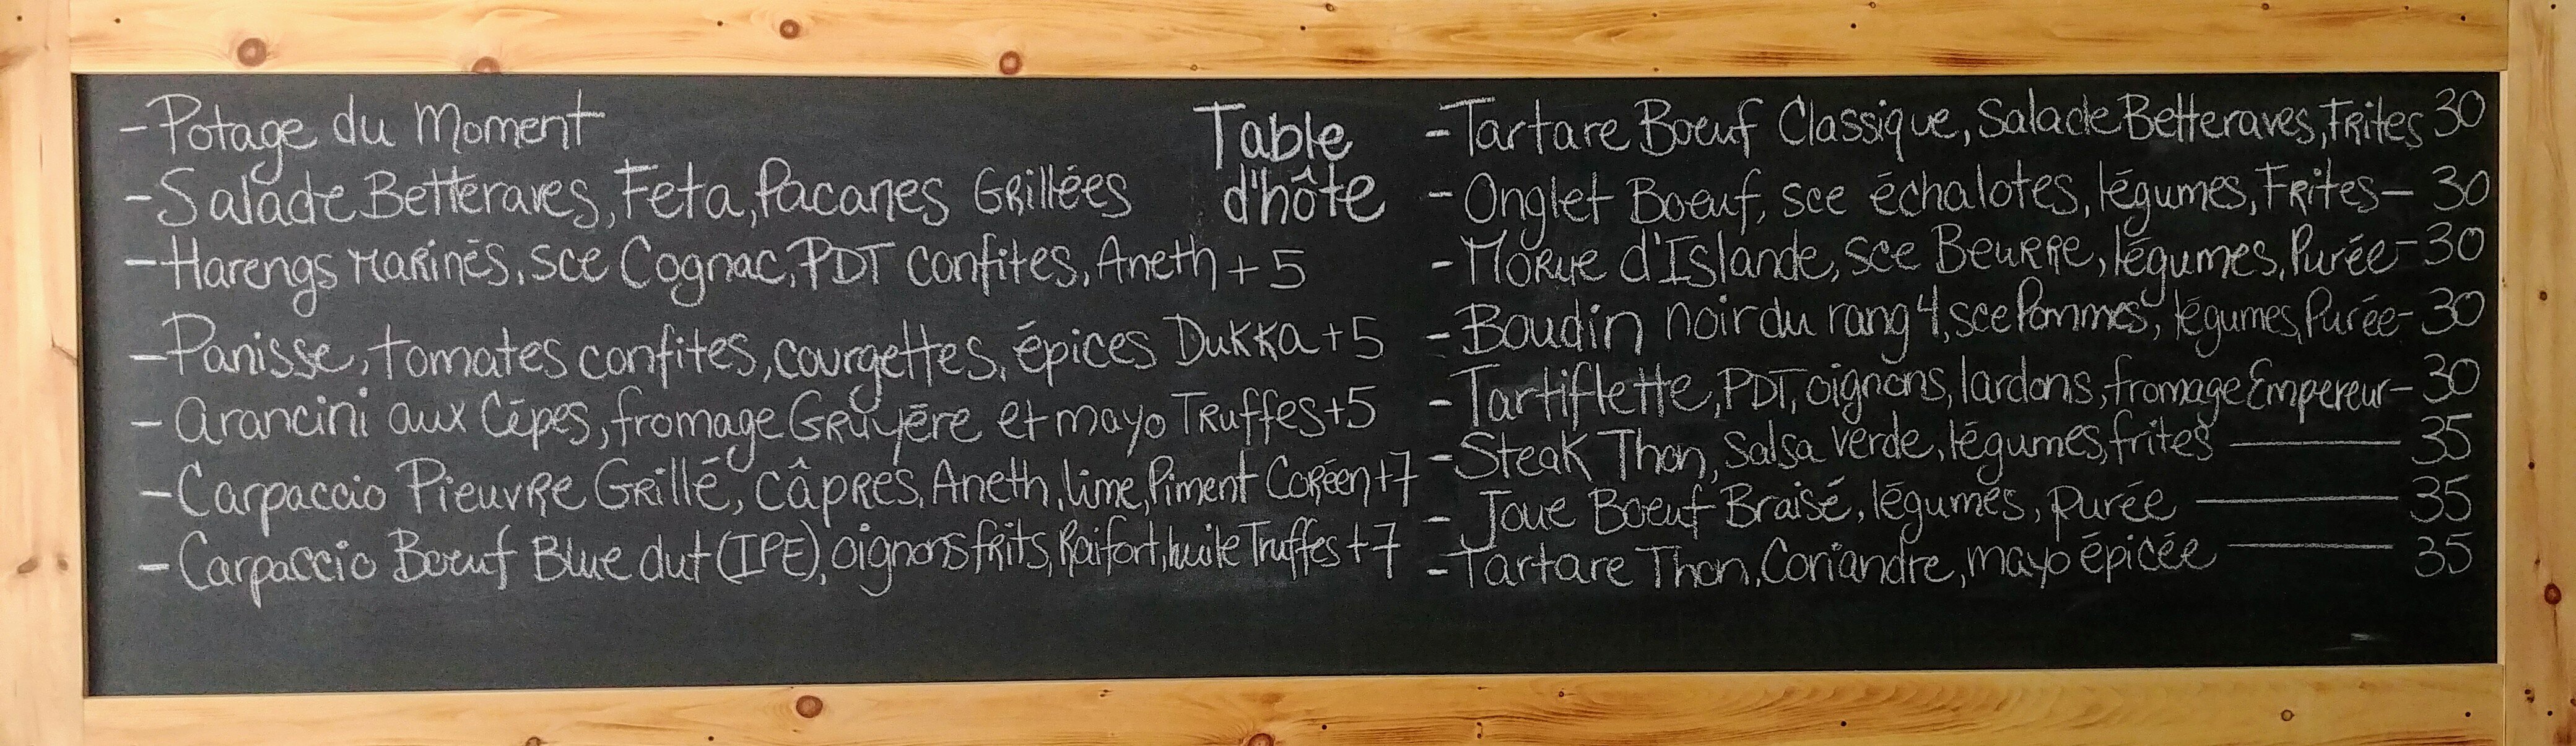 - Potage du Moment
- Salade Betteraves, Feta, Pacanes Grillées
- Harengs marinés, sce Cognac, PDT confites, Aneth + 5
- Panisse, tomates confites, courgettes, épices Dukka + 5
- Arancini aux Cêpes, fromage Gruyère et mayo Truffes + 5
- Carpaccio Pieuvre Grillé, câpres, Aneth, lime, Piment Coréen + 7
- Carpaccio Boeuf Blue dut (IPE), oignons frits, Raifort, huile Truffes + 7
Table
d'hôte
- Tartare Boeuf Classique, Salade Betteraves, Frites 30
- Onglet Boeuf, sce échalotes, légumes, Frites - 30
- Morue d'Islande, sce Beurre, légumes, Purée - 30
- Boudin noir du rang 4, sce Pommes, légumes, Purée - 30
- Tartiflette, PDT, oignons, lardons, fromage Empereur - 30
- Steak Thon, Salsa verde, légumes, frites — 35
- Joue Boeuf Braisé, légumes, purée — 35
- Tartare Thon, Coriandre, mayo épicée — 35